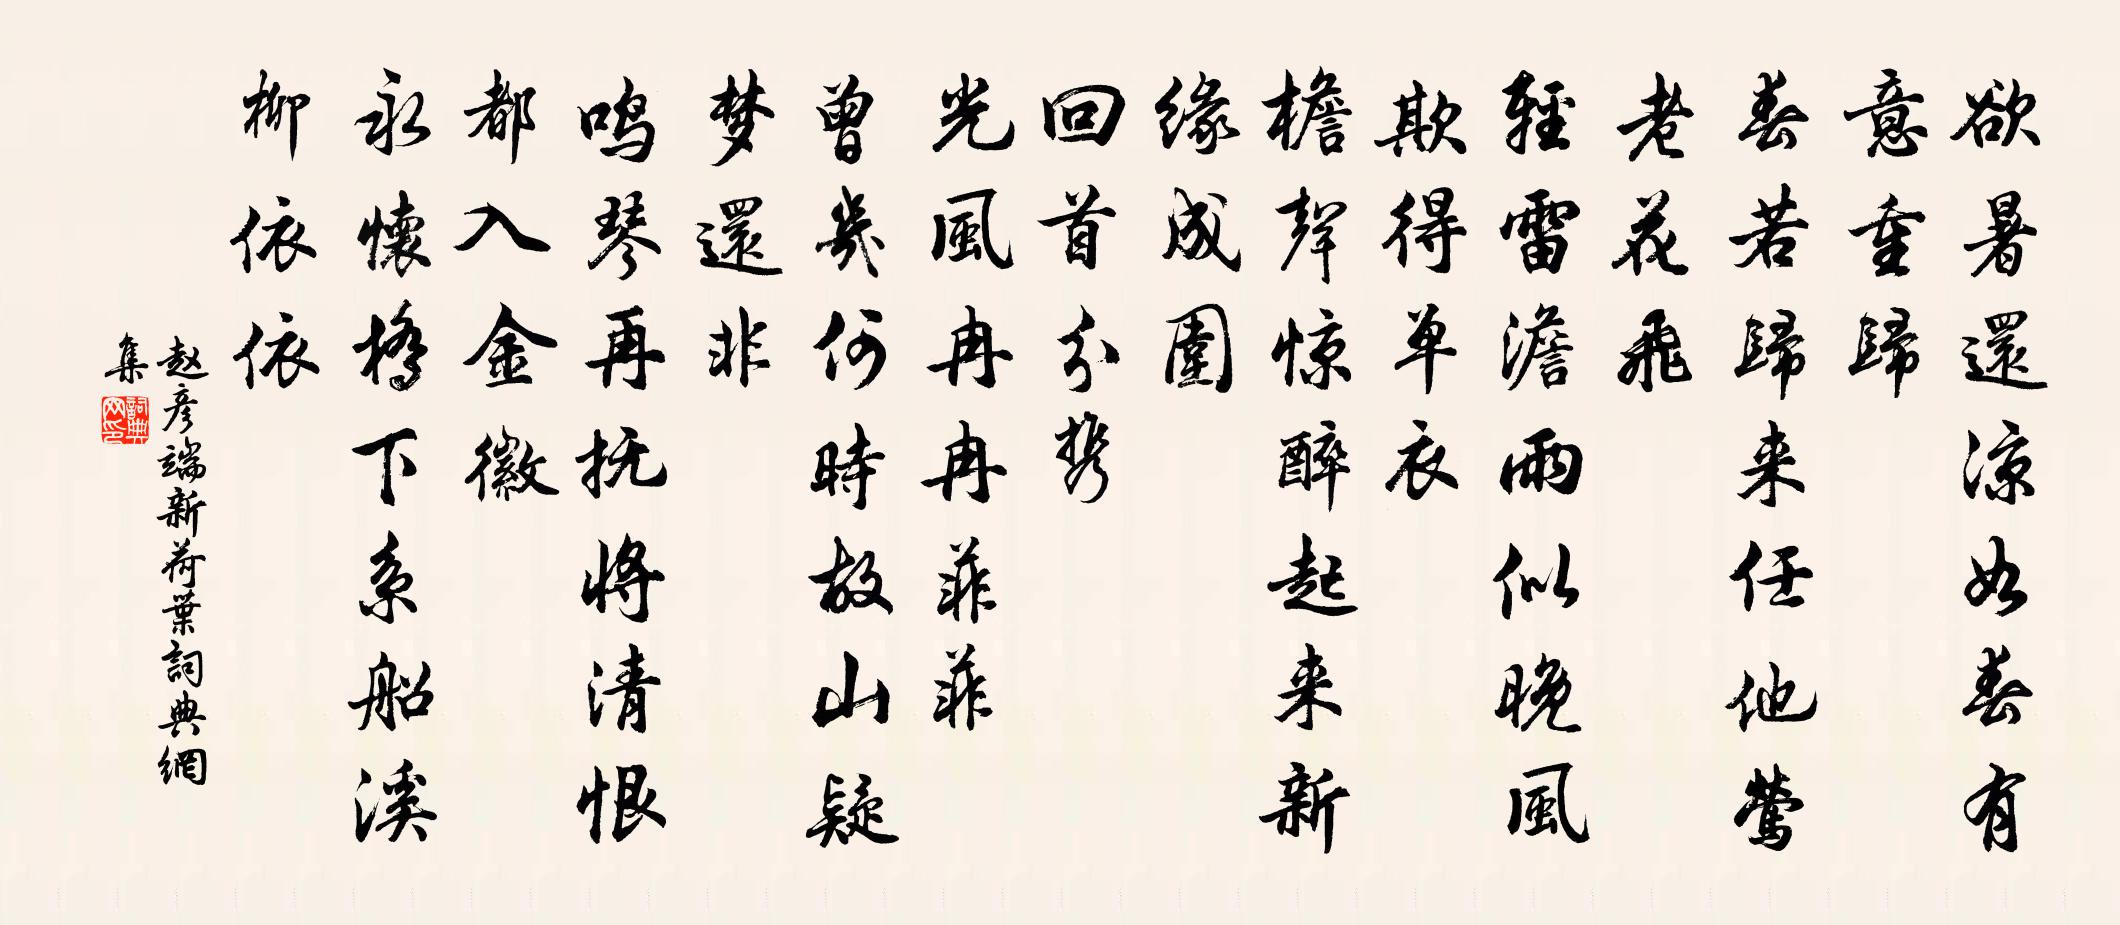 欲暑還涼如春有
意重歸
春若歸来任他鶯
老花飛
輕雷澹雨似晚風
欺得单衣
檐聲惊醉起来新
緣成圍
回首分携
光風冉冉菲菲
曾幾何時故山疑
梦還非
鸣琴再抚將清恨
都入金徽
永懷橋下系船溪
柳依依
赵彦端新荷葉詞典網
集
詞典網印